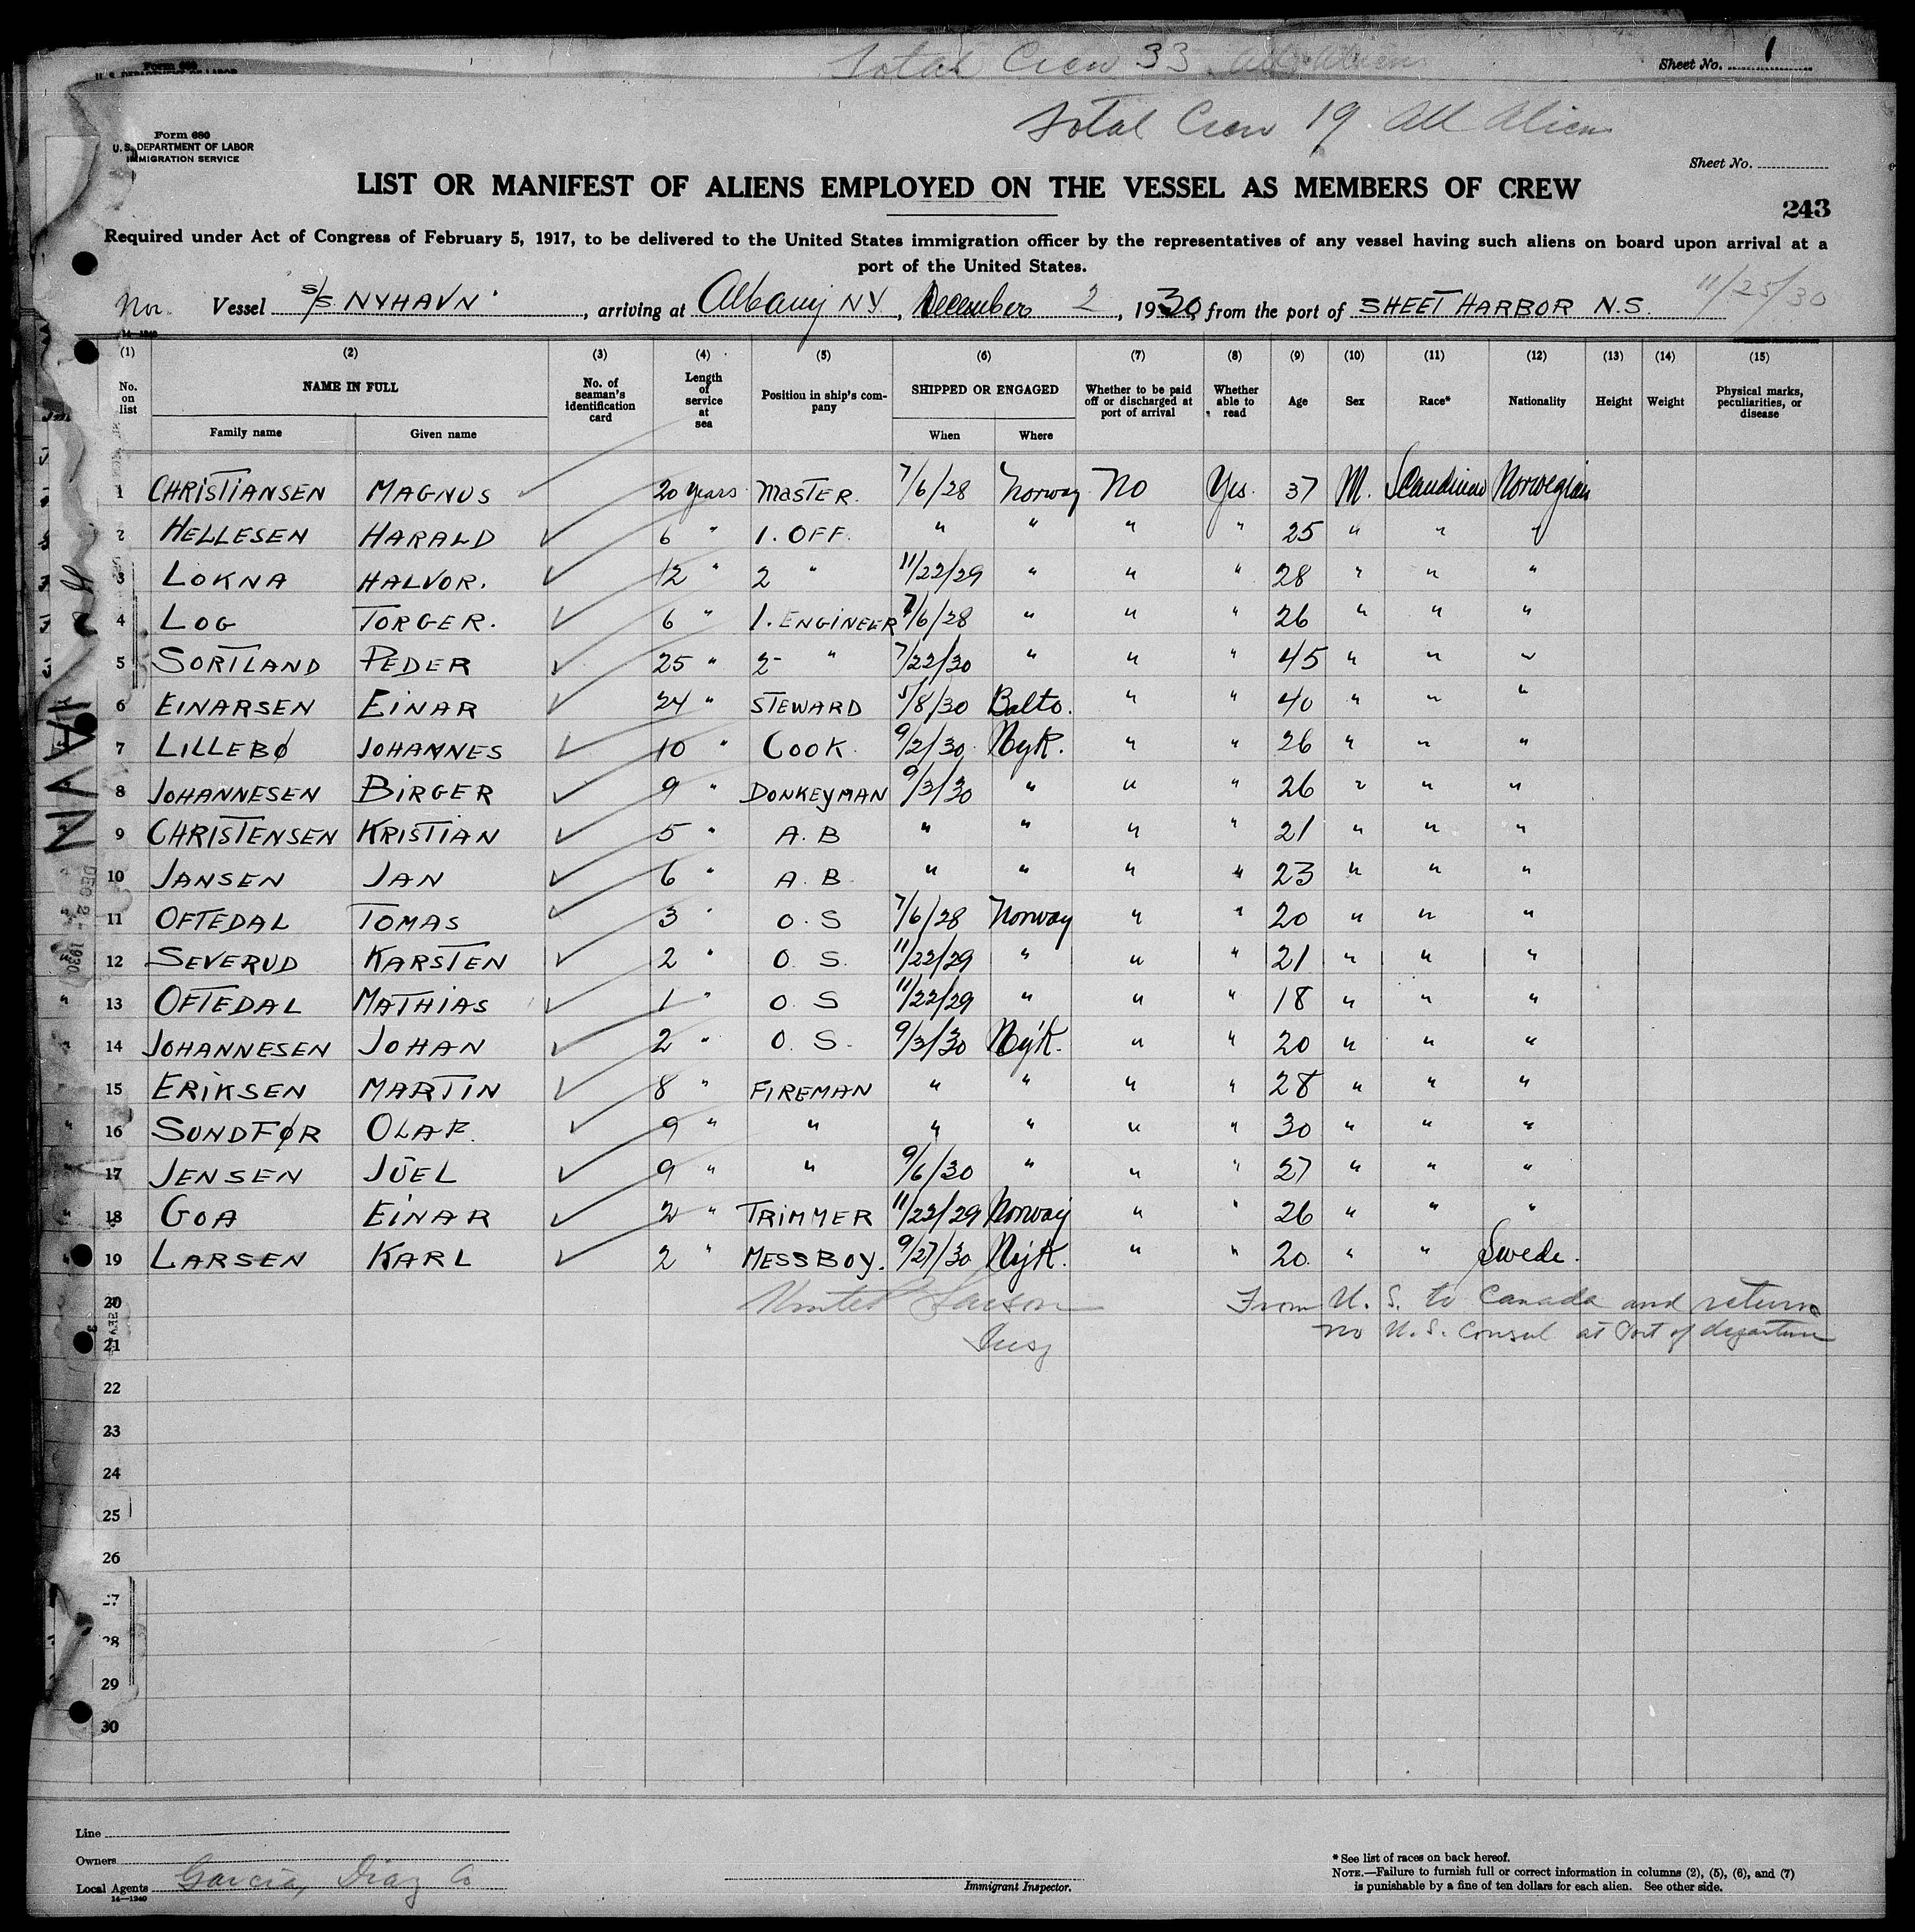 Total Crew 33 All Aliens
Sheet No. 1
Form 680
U. S. DEPARTMENT OF LABOR
Total Crew 19 All Aliens
Form 680
U. S. DEPARTMENT OF LABOR
IMMIGRATION SERVICE
Sheet No.
LIST OR MANIFEST OF ALIENS EMPLOYED ON THE VESSEL AS MEMBERS OF CREW
243
Required under Act of Congress of February 5, 1917, to be delivered to the United States immigration officer by the representatives of any vessel having such aliens on board upon arrival at a
port of the United States.
11/25/30
Nor. Vessel S/S. NYHAVN, arriving at Albany NY, December 2, 1930, from the port of SHEET HARBOR N.S.
14—1240
(1) (2) (3) (4) (5) (6) (7) (8) (9) (10) (11) (12) (13) (14) (15)
No. on list NAME IN FULL No. of seaman's identification card Length of service at sea Position in ship's company SHIPPED OR ENGAGED Whether to be paid off or discharged at port of arrival Whether able to read Age Sex Race* Nationality Height Weight Physical marks, peculiarities, or disease
Family name Given name When Where
1 CHRISTIANSEN MAGNUS 20 years MASTER. 7/6/28 Norway No Yes. 37 M. Scandinav Norwegian
2 HELLESEN HARALD ✓ 6 " 1. OFF. " " " " 25 " " "
3 LOKNA HALVOR. ✓ 12 " 2 " 11/22/29 " " " 28 " " "
4 LOG TORGER. ✓ 6 " 1. ENGINEER 7/6/28 " " " 26 " " "
5 SORTLAND PEDER ✓ 25 " 2- " 7/22/30 " " " 45 " " "
6 EINARSEN EINAR ✓ 24 " STEWARD 5/8/30 Balto. " " 40 " " "
7 LILLEBØ JOHANNES ✓ 10 " COOK. 9/2/30 NyK. " " 26 " " "
8 JOHANNESEN BIRGER ✓ 9 " DONKEYMAN 9/3/30 " " " 26 " " "
9 CHRISTENSEN KRISTIAN ✓ 5 " A. B " " " " 21 " " "
10 JANSEN JAN ✓ 6 " A. B. " " " " 23 " " "
11 OFTEDAL TOMAS ✓ 3 " O. S 7/6/28 Norway " " 20 " " "
12 SEVERUD KARSTEN ✓ 2 " O. S. 11/22/29 " " " 21 " " "
13 OFTEDAL MATHIAS ✓ 1 " O. S 11/22/29 " " " 18 " " "
14 JOHANNESEN JOHAN ✓ 2 " O. S. 9/3/30 NyK. " " 20 " " "
15 ERIKSEN MARTIN ✓ 8 " FIREMAN " " " " 28 " " "
16 SUNDFØR OLAF. ✓ 9 " " " " " " 30 " " "
17 JENSEN JUEL ✓ 9 " " 9/6/30 " " " 27 " " "
18 GOA EINAR ✓ 2 " TRIMMER 11/22/29 Norway " " 26 " " "
19 LARSEN KARL ✓ 2 " MESSBOY. 9/27/30 NyK. " " 20. " " Swede.
20 From U. S. to Canada and return
21 Insp no U. S. Consul at Port of departure
22
23
24
25
26
27
28
29
30
Line
Owners
Local Agents Garcia, Diaz Co
14—1240
Immigrant Inspector.
* See list of races on back hereof.
NOTE.—Failure to furnish full or correct information in columns (2), (5), (6), and (7)
is punishable by a fine of ten dollars for each alien. See other side.